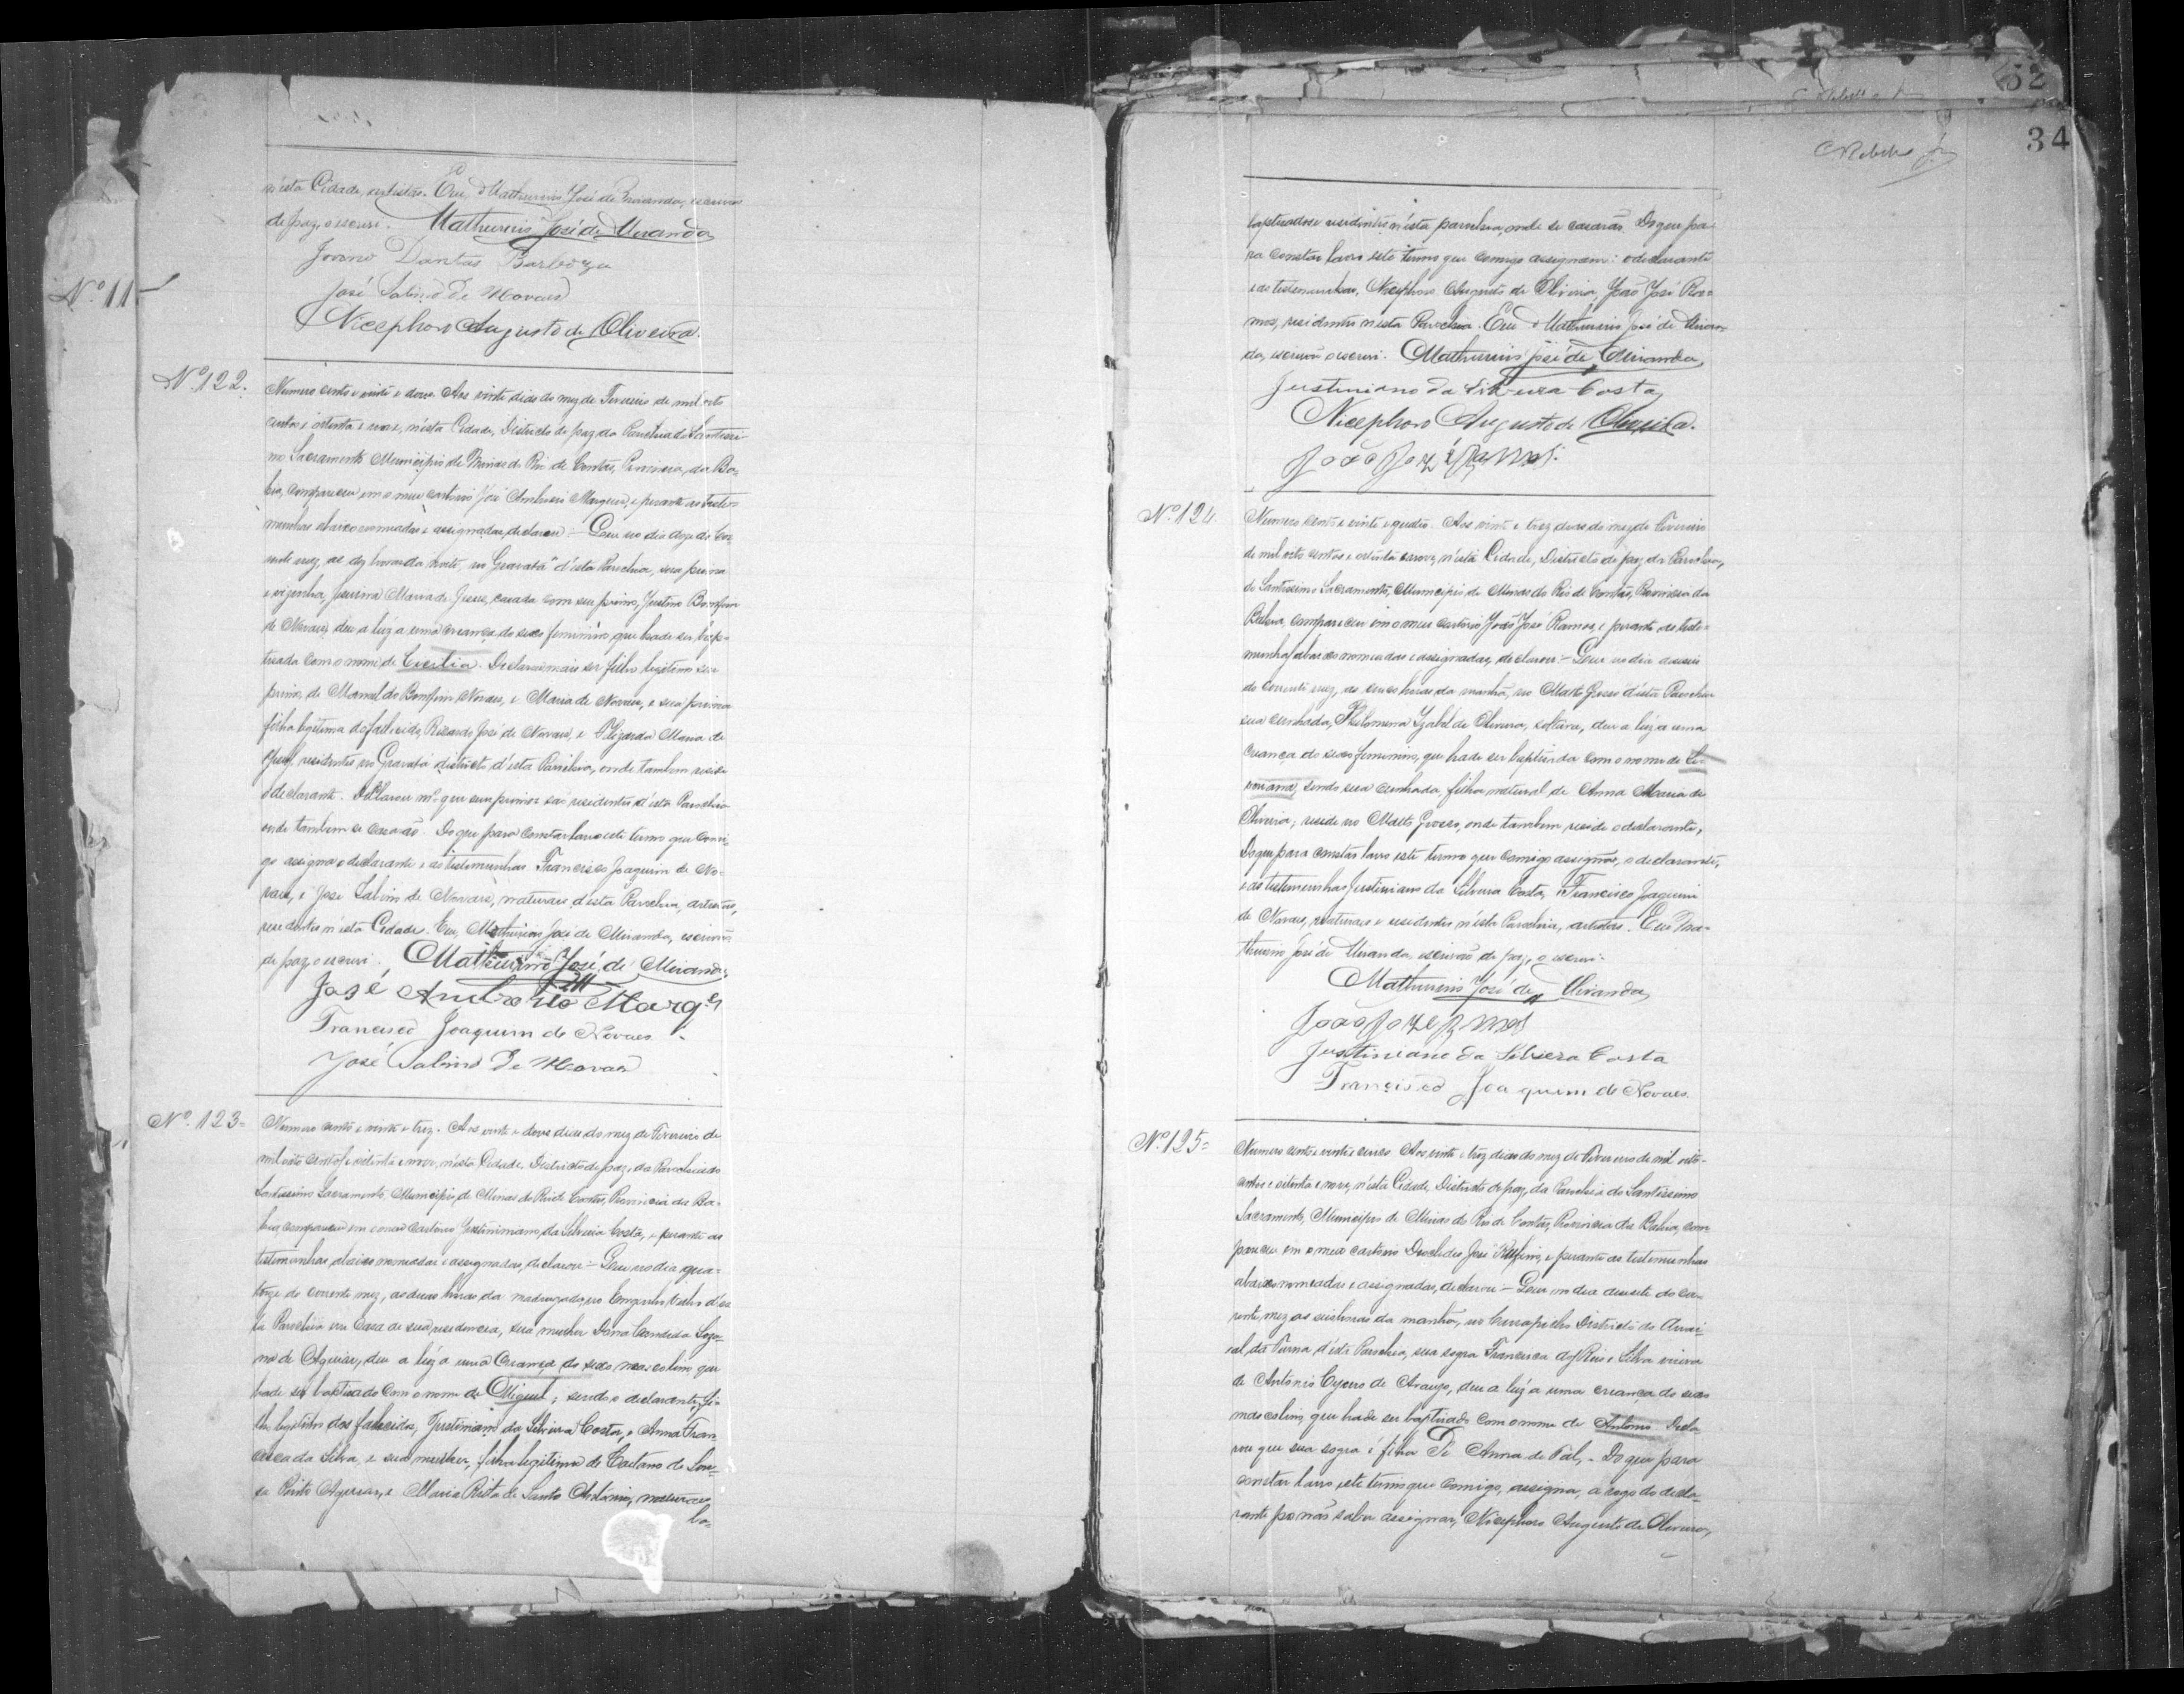 n'esta Cidade, artistas. Eu, Mathurino José de Miranda, escrivão
de paz, o escrevi. Mathurino José de Miranda
Jovino Dantas Barboza
José Salino de Novaes
Nicephoro Augusto de Oliveira.
Nº 11
Nº 122.
Numero cento e vinte e dous. Aos vinte dias do mez de Fevereiro de mil oito
centos e oitenta e nove, n'esta Cidade, Districto de paz da Parochia do Santissi-
mo Sacramento Municipio de Minas do Rio de Contas, Provincia da Ba-
hia, compareceu em o meu cartorio José Ambrosio Marques, e perante as teste-
munhas abaixo nomeadas e assignadas, declarou:- Que no dia doze do cor-
rente mez, as dez horas da noite, no "Gravatá" d'esta Parochia, sua prima
e vizinha, Maria de Jesus, casada com seu primo, Justino Bomfim
de Novaes, deu a luz a uma creança do sexo feminino que hade ser bap-
tisada com o nome de Ercilia. Declarou mais ser filho legitimo seu
primo, de Manoel do Bomfim Novaes, e Maria de Novaes, e sua prima
filha legitima do fallecido, Ricardo José de Novaes, e Maria de
Jesus, residentes no Gravatá districto d'esta Parochia, onde tambem reside
o declarante. Declarou mais que seus primos são residentes d'esta Parochia
onde tambem se casarão. Do que para constar lavro este termo que comi-
go assigna o declarante e as testemunhas Francisco Joaquim de No-
vaes, e José Salino de Novaes, naturaes d'esta Parochia, artistas,
residentes n'esta Cidade. Eu, Mathurino José de Miranda, escrivão
de paz o escrevi. Mathurino José de Miranda
José Ambrosio Marqes
Francisco Joaquim de Novaes
José Salino de Novaes
Nº 123=
Numero cento e vinte e trez. Aos vinte e dous dias do mez de Fevereiro de
mil oito centos e oitenta e nove, n'esta Cidade, Districto de paz, da Parochia do
Santissimo Sacramento, Municipio, de Minas do Rio de Contas, Provincia da Ba-
hia, compareceu em o meu cartorio Justiniano da Silveira Costa, e perante as
testemunhas abaixo nomeadas e assignadas, declarou - Que no dia qua-
torze do corrente mez, as duas horas da madrugada, no Engenho Velho d'es-
ta Parochia em casa de sua residencia, sua mulher Dona Candida
de Aguiar, deu a luz a uma creança do sexo masculino, que
hade ser baptisado com o nome de Miguel; sendo o declarante, fi-
lho legitimo dos fallecidos, Justiniano da Silveira Costa, e Anna Fran-
cisca da Silva, e sua mulher, filha legitima de Caetano de Sou-
sa Pinto Aguiar, e Maria Rita de Santo Antonio, naturaes
ba-
34
baptisados e residentes n'esta parochia, onde se casarão. Do que pa-
ra constar lavro este termo que comigo assignam: o declarante
e as testemunhas, Nicephoro Augusto de Oliveira, João José Ra-
mos, residentes n'esta Parochia. Eu Mathurino José de Miran-
da, escrivão o escrevi. Mathurino José de Miranda
Justiniano da Silveira Costa
Nicephoro Augusto de Oliveira.
João José Ramos.
Nº 124.
Numero cento e vinte e quatro. Aos vinte e trez dias do mez de Fevereiro
de mil oito centos e oitenta e nove, n'esta Cidade, Districto de paz da Parochia,
do Santissimo Sacramento, Municipio de Minas do Rio de Contas, Provincia da
Bahia, compareceu em o meu cartorio João José Ramos, e perante as teste-
munhas abaixo nomeadas e assignadas, declarou - Que no dia
do corrente mez, as cinco horas da manhã, no Matto Grosso d'esta Parochia
sua cunhada, Philomena Izabel de Oliveira, solteira, deu a luz a uma
creança do sexo feminino, que hade ser baptisada com o nome de
sendo sua cunhada, filha natural de Anna Maria de
Oliveira; reside no Matto Grosso, onde tambem reside o declarante,
Do que para constar lavro este termo que comigo assignão, o declarante,
e as testemunhas Justiniano da Silveira Costa, e Francisco Joaquim
de Novaes, naturaes e residentes n'esta Parochia, artistas. Eu Ma-
thurino José de Miranda, escrivão de paz, o escrevi.
Mathurino José de Miranda
João José Ramos
Justiniano da Silveira Costa
Francisco Joaquim de Novaes.
Nº 125=
Numero cento e vinte e cinco. Aos vinte e trez dias do mez de Fevereiro de mil oito-
centos e oitenta e nove, n'esta Cidade, Districto de paz, da Parochia do Santissimo
Sacramento, Municipio de Minas do Rio de Contas, Provincia da Bahia, com-
pareceu em o meu cartorio Deoclides José Rufino, e perante as testemunhas
abaixo nomeadas e assignadas, declarou - Que no dia desesete do cor-
rente mez, as seis horas da manhã, no Districto do Arrai-
al, da Furna d'esta Parochia, sua sogra Francisca dos Reis e Silva viuva
de Antonio Cyrero de Araujo, deu a luz a uma creança do sexo
masculino, que hade ser baptisado com o nome de Antonio. Decla-
rou que sua sogra é filha De Anna de Tál,. Do que para
constar lavro, este termo que comigo, assigna, a rogo do decla-
rante por não saber assignar, Nicephoro Augusto de Oliveira,